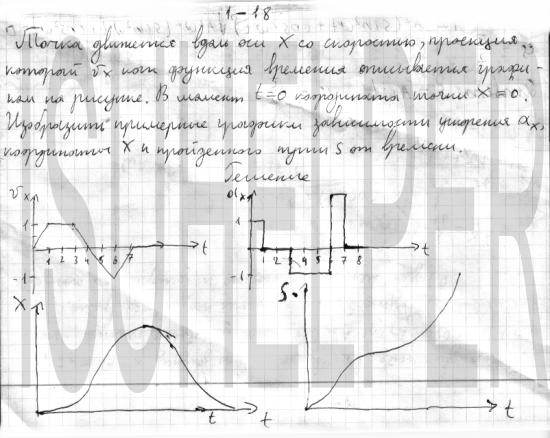 1-18
Точка движется вдоль оси X со скоростью, проекция
которой υx как функция времени описывается графи-
ком на рисунке. В момент t=0 координата точки X=0.
Изобразить примерные графики зависимости ускорения ax,
координаты X и пройденного пути S от времени.
Решение
υx
1
-1
1 2 3 4 5 6 7
t
ax
1
-1
1 2 3 4 5 6 7 8
t
X
t
t
S
t
ISSHELPER